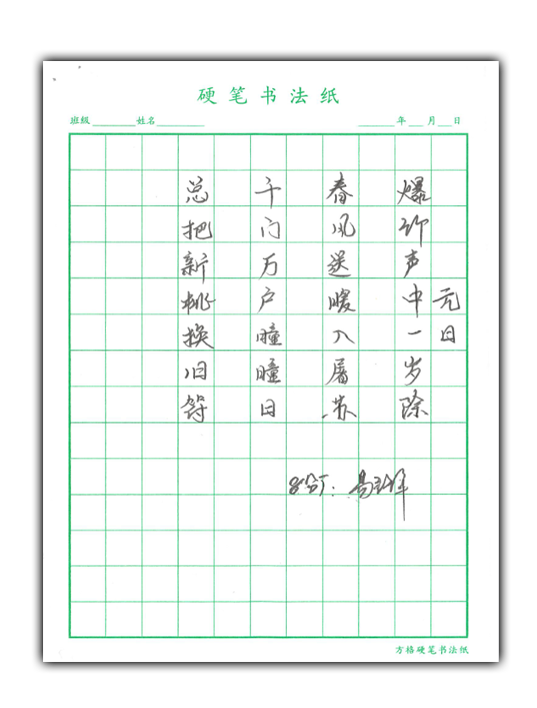 硬笔书法纸
班级 姓名 年 月 日
元日
爆竹声中一岁除
春风送暖入屠苏
千门万户曈曈日
总把新桃换旧符
方格硬笔书法纸